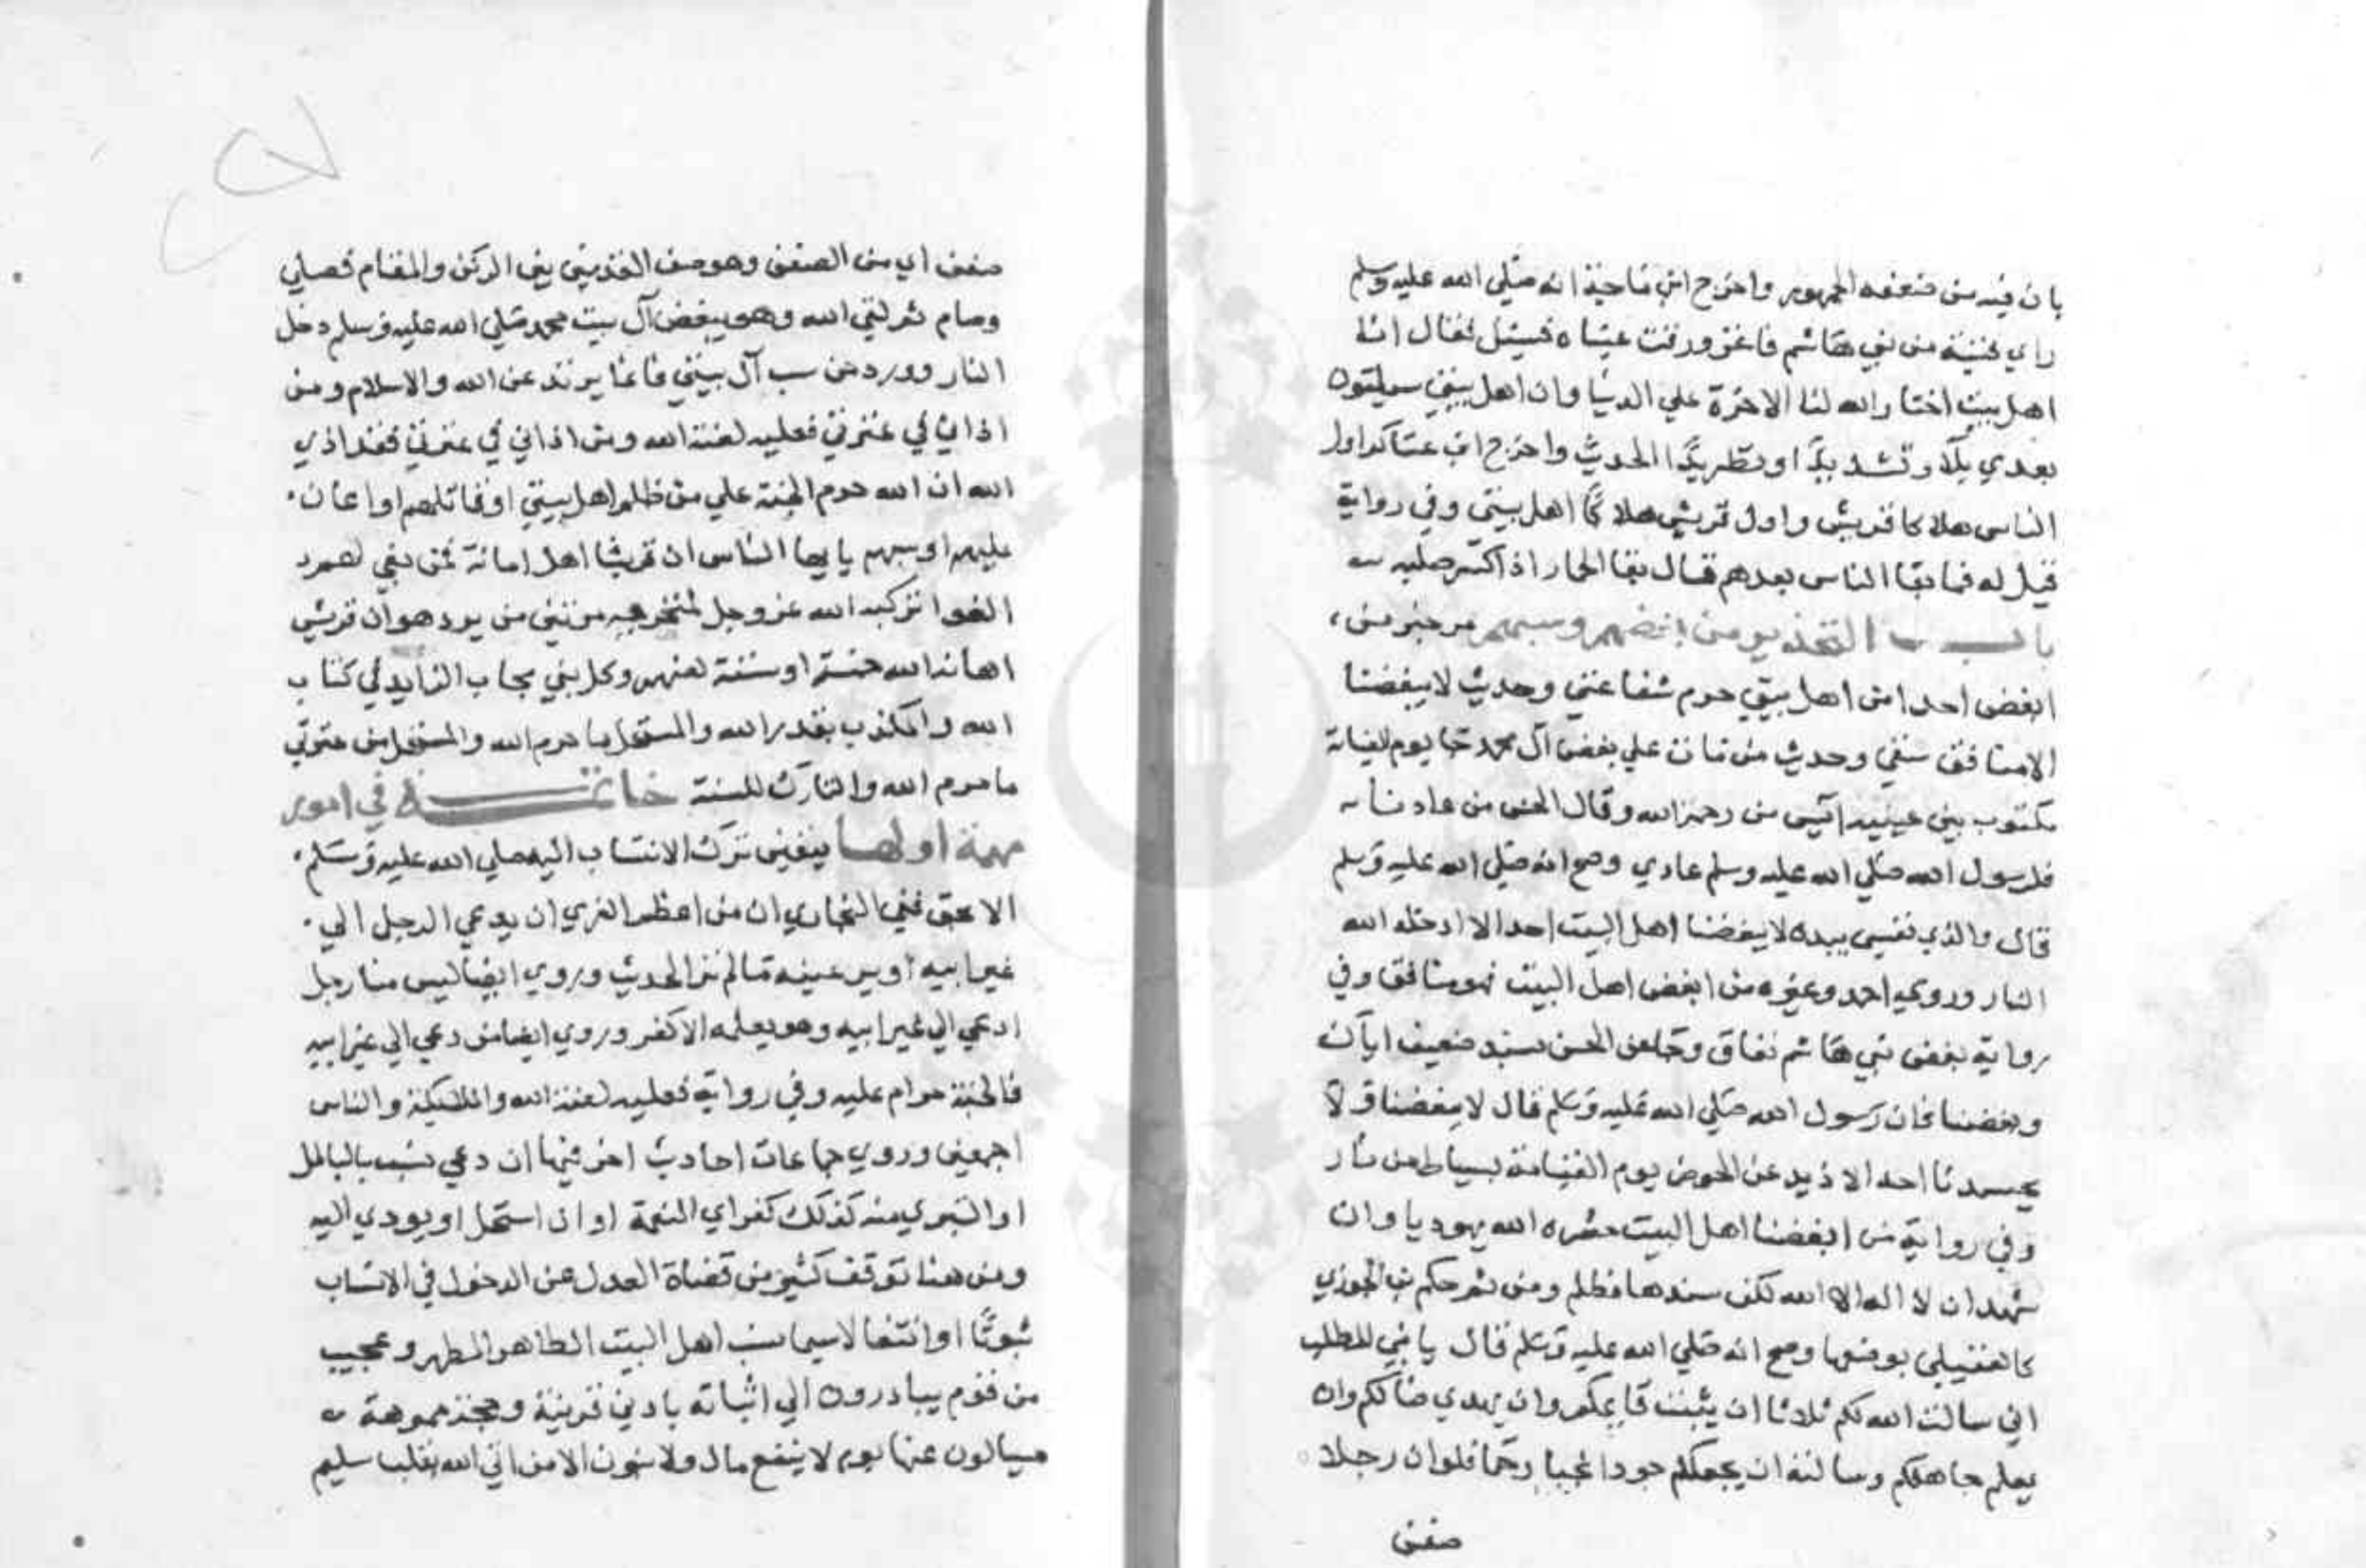 بان فيه من ضعفه الجمهور واخرج ابن ماجة انه صلي الله عليه وسلم
راي فتية من بني هاشم فاغرورقت عيناه فسيل فقال انا
اهل بيت اختار الله لنا الاخرة علي الدنيا وان اهل بيتي سيلقون
بعدي بلا وتشديدا وتطريدا الحديث واخرج ابن عساكر اول
الناس هلاكا قريش واول قريش هلاكا اهل بيتي وفي رواية
قيل له فما بقا الناس بعدهم قال بقا الحمار اذا كسر صلبه
باب التحذير من بغضهم وسبهم مر خبر من
ابغض احدا من اهل بيتي حرم شفاعتي وحديث لا يبغضنا
الا منافق شقي وحديث من مات علي بغض آل محمد جا يوم القيامة
مكتوب بين عينيه آيس من رحمة الله وقال الحسن من عادانا
فلرسول الله صلي الله عليه وسلم عادي وصح انه صلي الله عليه وسلم
قال والذي نفسي بيده لا يبغضنا اهل البيت احد الا ادخله الله
النار وروي احمد وغيره من ابغض اهل البيت فهو منافق وفي
رواية بغض بني هاشم نفاق وجا عن الحسن بسند ضعيف اياك
وبغضنا فان رسول الله صلي الله عليه وسلم قال لا يبغضنا ولا
يحسدنا احد الا ذيد عن الحوض يوم القيامة بسياط من نار
وفي رواية من ابغضنا اهل البيت حشره الله يهوديا وان
شهد ان لا اله الا الله لكن سندها مظلم ومن ثم حكم ابن الجوزي
كالعقيلي بوضعها وصح انه صلي الله عليه وسلم قال يا بني المطلب
اني سالت الله لكم ثلاثا ان يثبت قايمكم وان يهدي ضالكم وان
يعلم جاهلكم وسالته ان يجعلكم جودا نجبا رحما فلو ان رجلا
صفن
صفن اي من الصفن وهو صف القدمين بين الركن والمقام فصلي
وصام ثم لقي الله وهو يبغض آل بيت محمد صلي الله عليه وسلم دخل
النار وورد من سب آل بيتي فانما يرتد عن الله والاسلام ومن
اذاني في عترتي فعليه لعنة الله ومن اذاني في عترتي فقد اذي
الله ان الله حرم الجنة علي من ظلم اهل بيتي او قاتلهم او اعان
عليهم او سبهم يا ايها الناس ان قريشا اهل امانة فمن بغي لهم
العوا تركبه الله عز وجل لمنخره مرتين من يرد هوان قريش
اهانه الله خمسة او ستة لعنهم وكل نبي مجاب الزايد في كتاب
الله والمكذب بقدر الله والمستحل ما حرم الله والمستحل من عترتي
ما حرم الله والتارك للسنة خاتمة في امور
مهمة اولها يتعين ترك الانتساب اليه صلي الله عليه وسلم
الا بحق ففي البخاري ان من اعظم الفري ان يدعي الرجل الي
غير ابيه او يري عينه ما لم تر الحديث وروي ايضا ليس منا رجل
ادعي الي غير ابيه وهو يعلمه الا كفر وروي ايضا من دعي الي غير ابيه
فالجنة حرام عليه وفي رواية فعليه لعنة الله والملايكة والناس
اجمعين وروي جماعات احاديث اخر فيها ان دعي نسب بالباطل
او التبري منه كذلك كفر اي النعمة او ان استحل او يودي اليه
ومن هنا توقف كثير من قضاة العدل عن الدخول في الانساب
ثبوتا او انتفا لا سيما نسب اهل البيت الطاهر المطهر وعجيب
من قوم يبادرون الي اثباته بادني قرينة وحجة مموهة
يسالون عنها يوم لا ينفع مال ولا بنون الا من اتي الله بقلب سليم